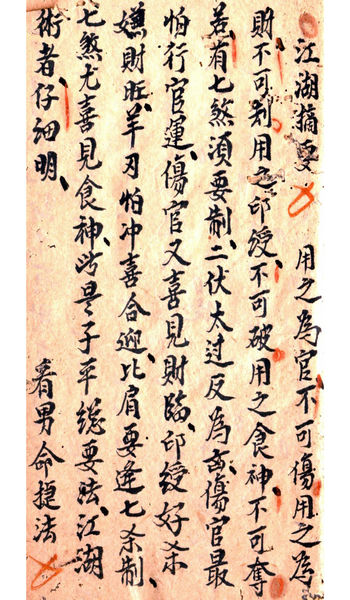 江湖摘要 用之為官不可傷用之為
財不可刼用之印綬、不可破用之食神、不可奪
若有七煞須要制、二伏太过反為凶、傷官最
怕行官運、傷官又喜見財臨、印綬好杀
嫌財旺、羊刃怕冲喜合迎、比肩要逢七杀制、
七煞尤喜見食神、此是子平総要法、江湖
術者仔細明、 看男命捷法